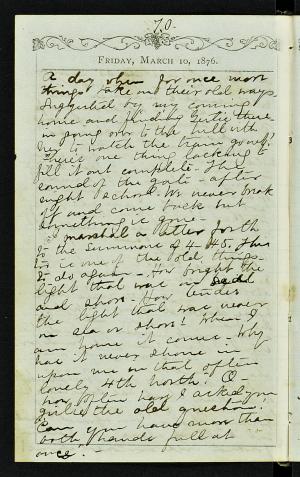 70.
FRIDAY, MARCH 10, 1876.
A day when for once most
things take on their old ways
Suggested by my coming
home and finding Gertie there
in going over to the hill with
her to watch the train go out?
There one thing lacking to
fill it out complete - The
sound of the gate - after
night school. We never break
off and come back but
something is gone -
I marshal a letter forth
to the summons of 4.45. This
too is one of the old things
to do again - How bright the
light that was on sea
and shore - How tender
the light that was never
on sea or shore! When I
am home it comes - Why
has it never shone in
upon me on that often
lonely 4th north? O
how often have I asked you
the old question!
Can you have more than
both hands full at
once -